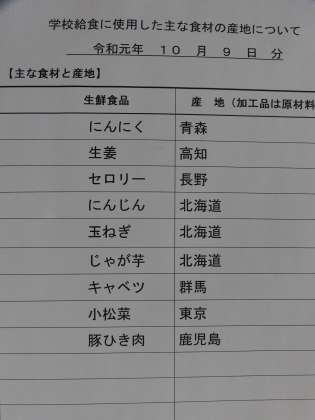 学校給食に使用した主な食材の産地について
令和元年 １０ 月 ９ 日 分
【主な食材と産地】
生鮮食品 産 地（加工品は原材料
にんにく 青森
生姜 高知
セロリー 長野
にんじん 北海道
玉ねぎ 北海道
じゃが芋 北海道
キャベツ 群馬
小松菜 東京
豚ひき肉 鹿児島